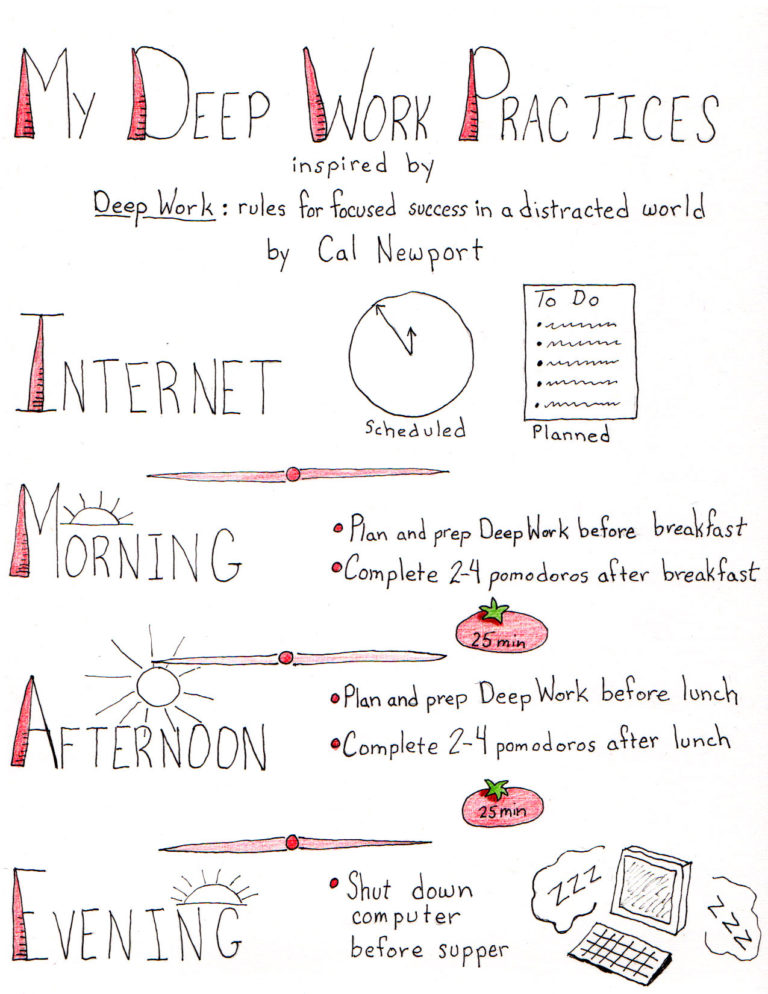 My Deep Work Practices
inspired by
Deep Work: rules for focused success in a distracted world
by Cal Newport
Internet
To Do
Scheduled
Planned
Morning
• Plan and prep Deep Work before breakfast
• Complete 2-4 pomodoros after breakfast
25 min
Afternoon
• Plan and prep Deep Work before lunch
• Complete 2-4 pomodoros after lunch
25 min
Evening
• Shut down
computer
before supper
ZZZ
ZZZ